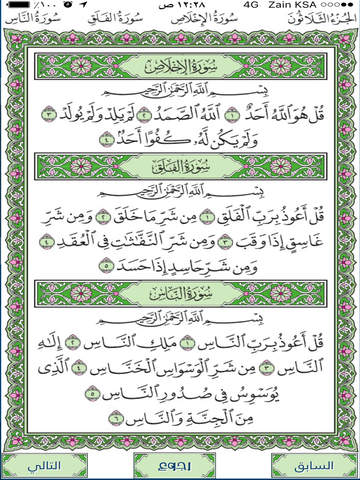 ٪١٠٠ ١٢:٢٨ ص 4G Zain KSA
الجزء الثلاثون سورة الإخلاص سورة الفلق سورة الناس
سورة الإخلاص
بِسْمِ ٱللَّهِ ٱلرَّحْمَٰنِ ٱلرَّحِيمِ
قُلْ هُوَ ٱللَّهُ أَحَدٌ ١ ٱللَّهُ ٱلصَّمَدُ ٢ لَمْ يَلِدْ وَلَمْ يُولَدْ ٣
وَلَمْ يَكُن لَّهُۥ كُفُوًا أَحَدٌۢ ٤
سورة الفلق
بِسْمِ ٱللَّهِ ٱلرَّحْمَٰنِ ٱلرَّحِيمِ
قُلْ أَعُوذُ بِرَبِّ ٱلْفَلَقِ ١ مِن شَرِّ مَا خَلَقَ ٢ وَمِن شَرِّ
غَاسِقٍ إِذَا وَقَبَ ٣ وَمِن شَرِّ ٱلنَّفَّٰثَٰتِ فِى ٱلْعُقَدِ ٤
وَمِن شَرِّ حَاسِدٍ إِذَا حَسَدَ ٥
سورة الناس
بِسْمِ ٱللَّهِ ٱلرَّحْمَٰنِ ٱلرَّحِيمِ
قُلْ أَعُوذُ بِرَبِّ ٱلنَّاسِ ١ مَلِكِ ٱلنَّاسِ ٢ إِلَٰهِ
ٱلنَّاسِ ٣ مِن شَرِّ ٱلْوَسْوَاسِ ٱلْخَنَّاسِ ٤ ٱلَّذِى
يُوَسْوِسُ فِى صُدُورِ ٱلنَّاسِ ٥
مِنَ ٱلْجِنَّةِ وَٱلنَّاسِ ٦
السابق رجوع التالي